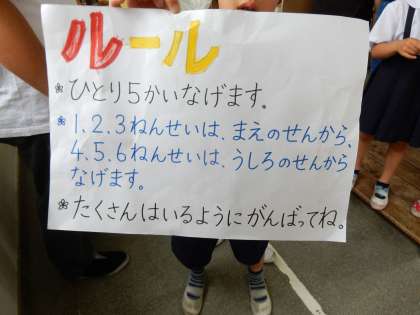 ルール
❀ひとり5かいなげます。
❀1.2.3ねんせいは、まえのせんから、
4.5.6ねんせいは、うしろのせんから
なげます。
❀たくさんはいるようにがんばってね。